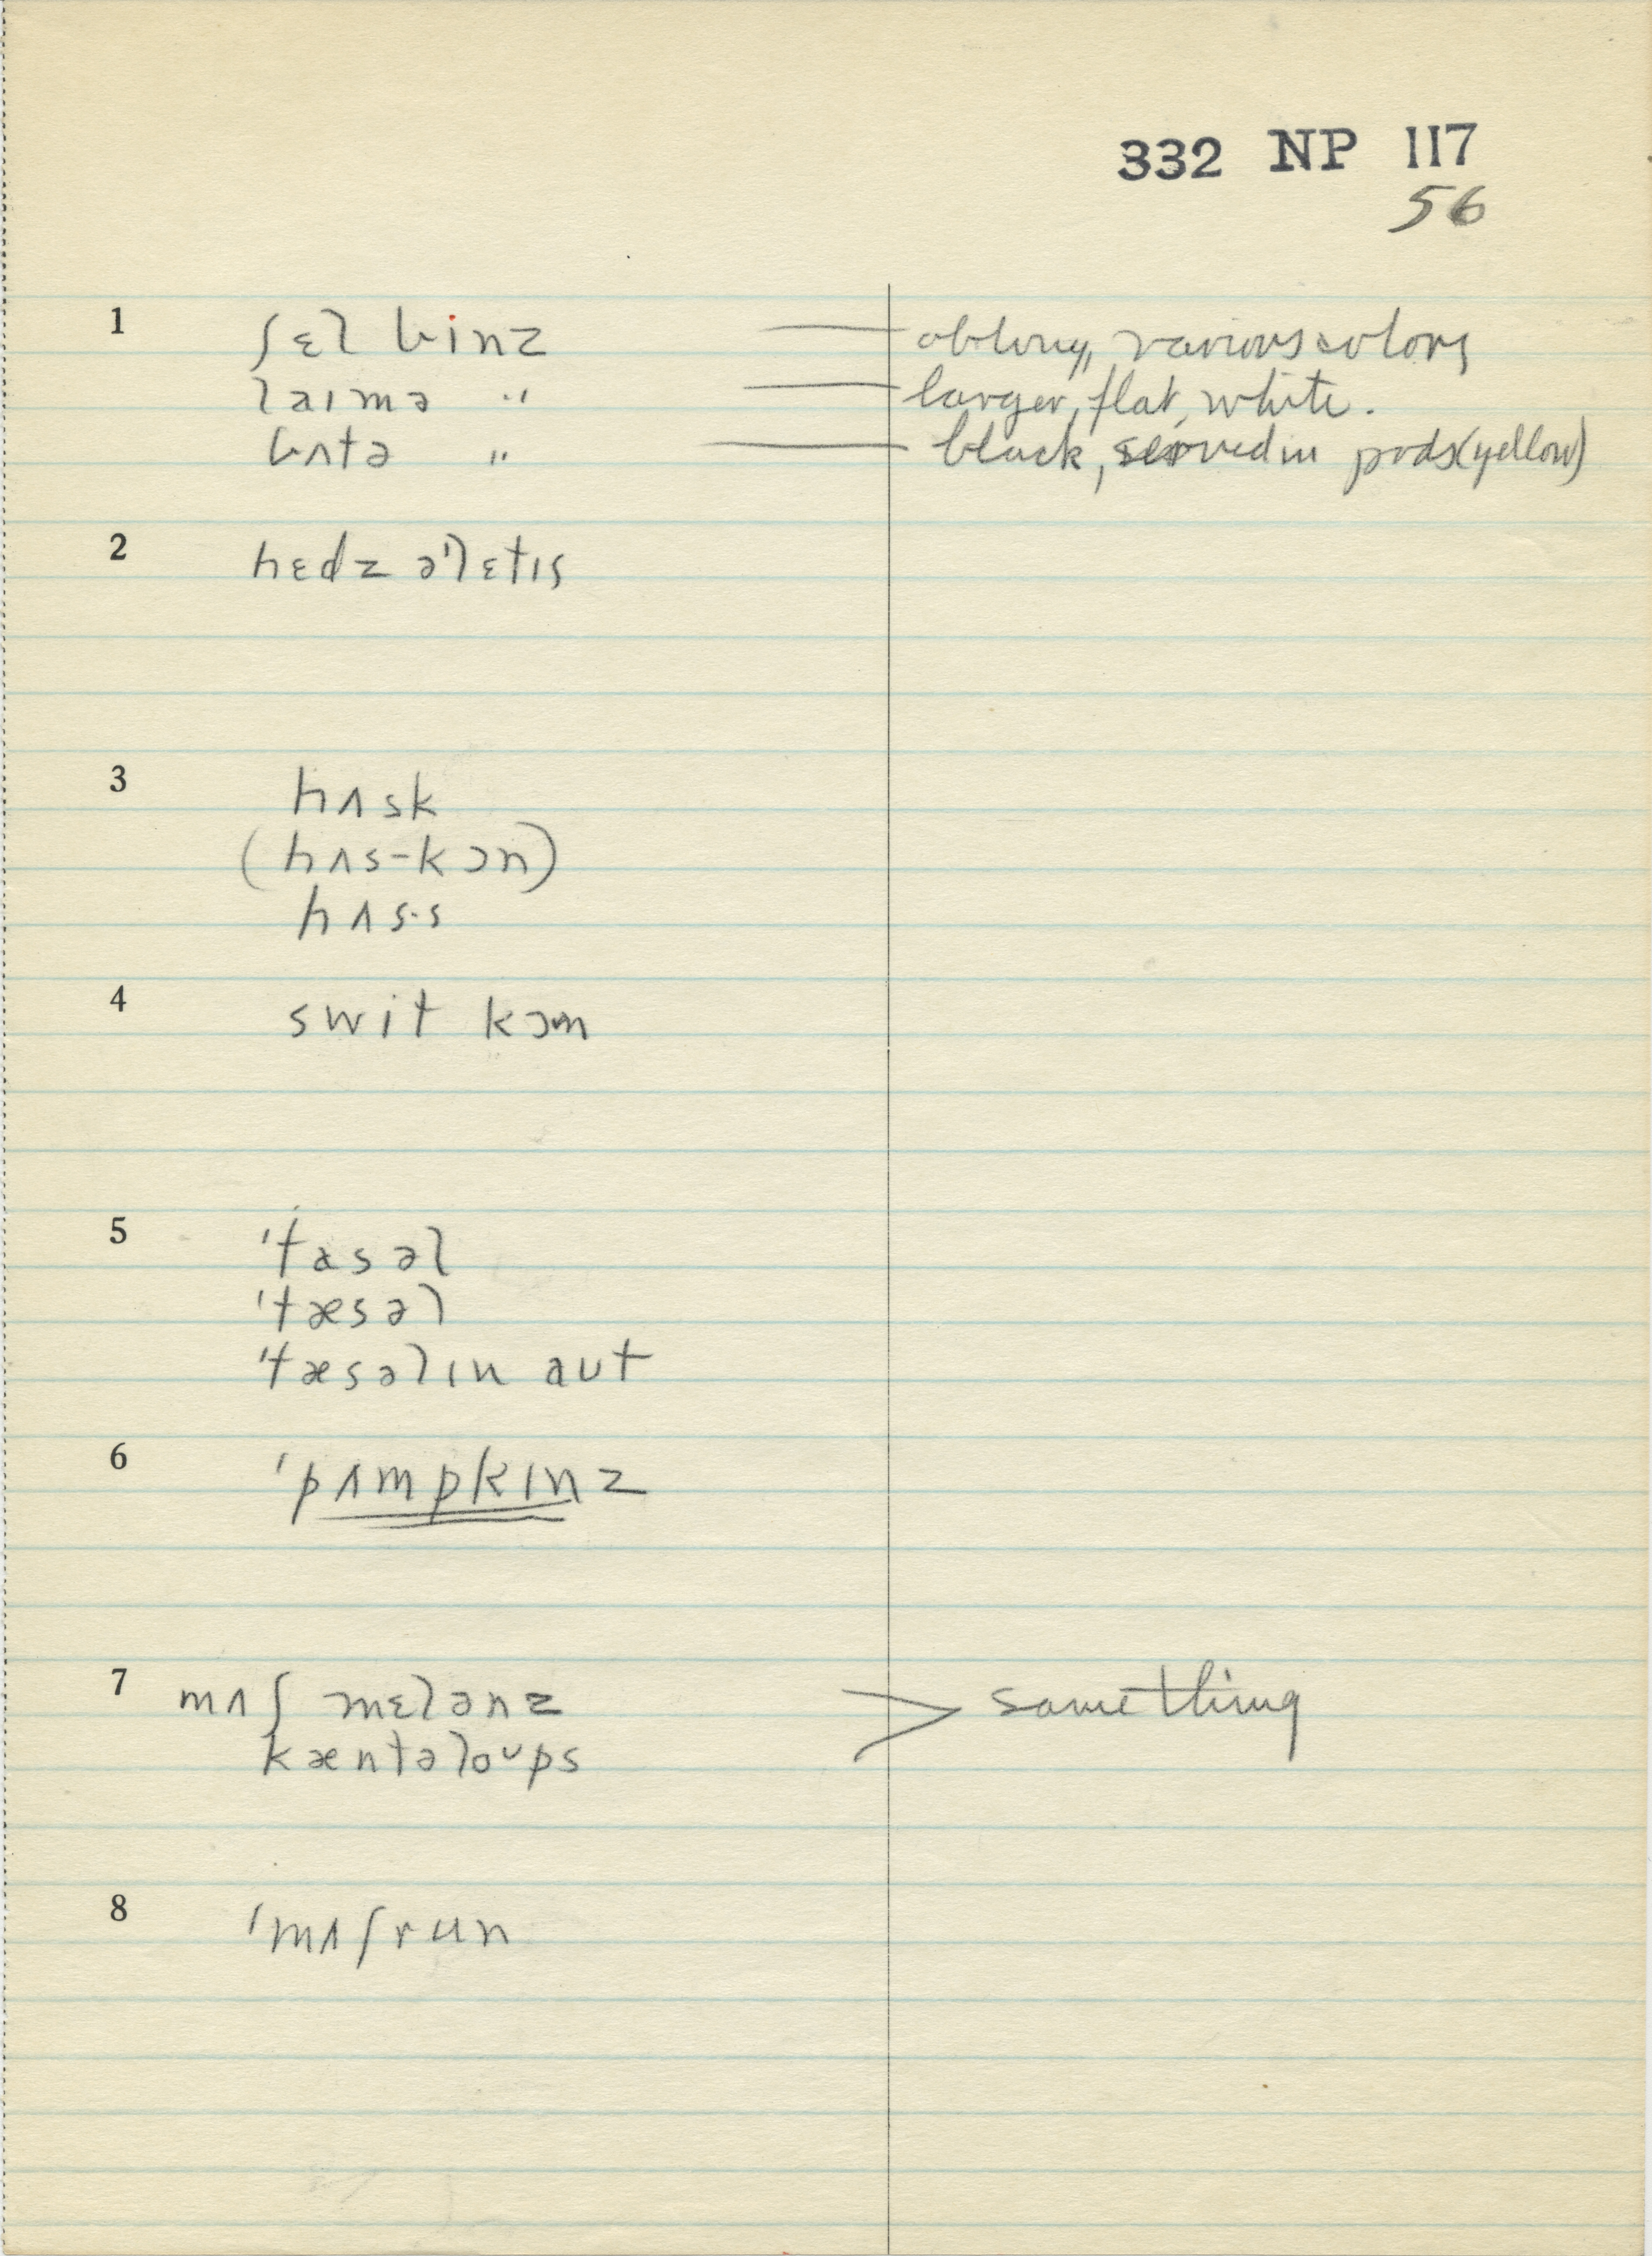 332 NP 117
56
1 ʃɛl binz — oblong, various colors
laɪmə " — larger, flat, white.
bʌtə " — black, served in pods (yellow)
2 hɛdz ə'lɛtɪs
3 hʌsk
(hʌs-kɔn)
hʌs·s
4 swit kɔn
5 'tasəl
'tæsəl
'tæsəlɪn aʊt
6 'pʌmpkɪnz
7 mʌʃ mɛlənz > same thing
kæntəloʊps
8 'mʌʃrun